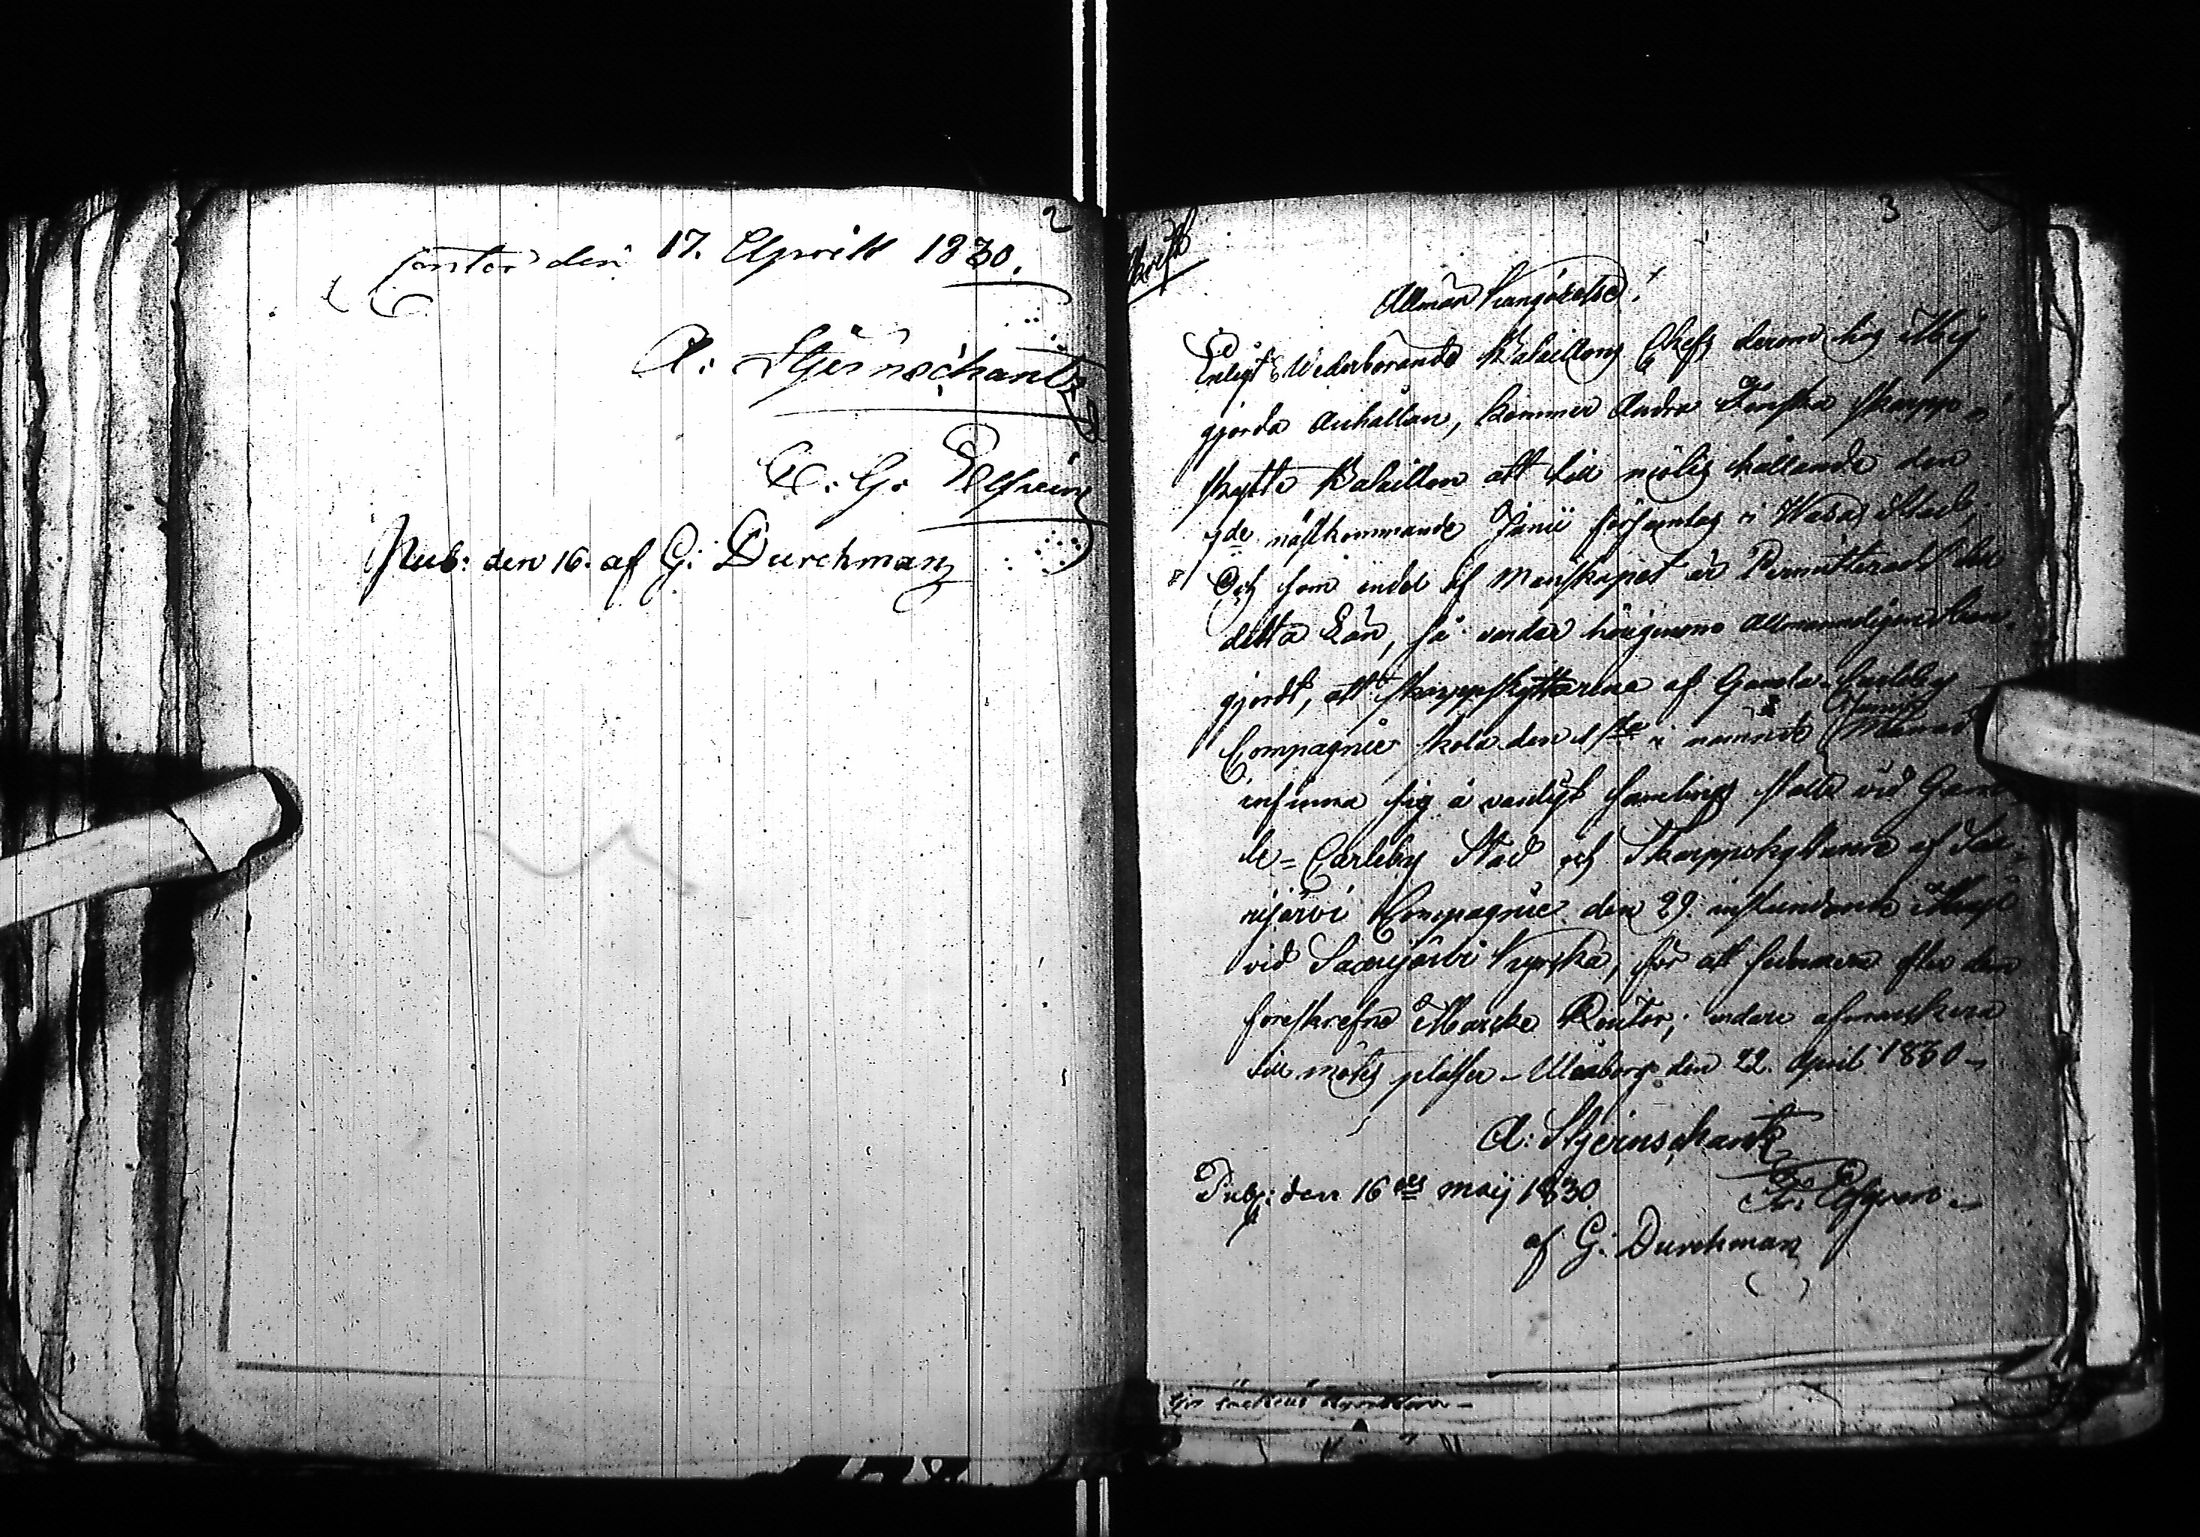 2
contor den 17. Aprill 1830.
A: Stjernschantz
C. G.
Pub: den 16. af G: Durchman
3
Allmän Kungörelse!
Enligt Wederbörande Bataillons Chefs derom hos Mig
gjorda anhållan, kommer Andra Finska Skarpp-
skytte Bataillon att till mötes hållande den
7de nästkommande Junii församlas i Wasa Stad,
Och som endel af Manskapet är Permitterade
detta Län, så varder härigenom Allmänneligen kun-
gjordt, att Skarppskyttarne af Gamla-Carleby
Compagnie skola den 1ste i nämnde Månad
infinna sig å vanligt samlings ställe vid Gam-
le-Carleby Stad och Skarppskyttarne af Saa-
rijärvi Compagnie den 29 instundande Maji
vid Saarijärvi Kyrcka, för att sedermera efter den
föreskrefne Marche Routen, vidare afmarchera
till mötes platsen – Uleåborg den 22. April 1830 –
A: Stjernschantz
Pub: den 16 Maij 1830.
af G: Durchman